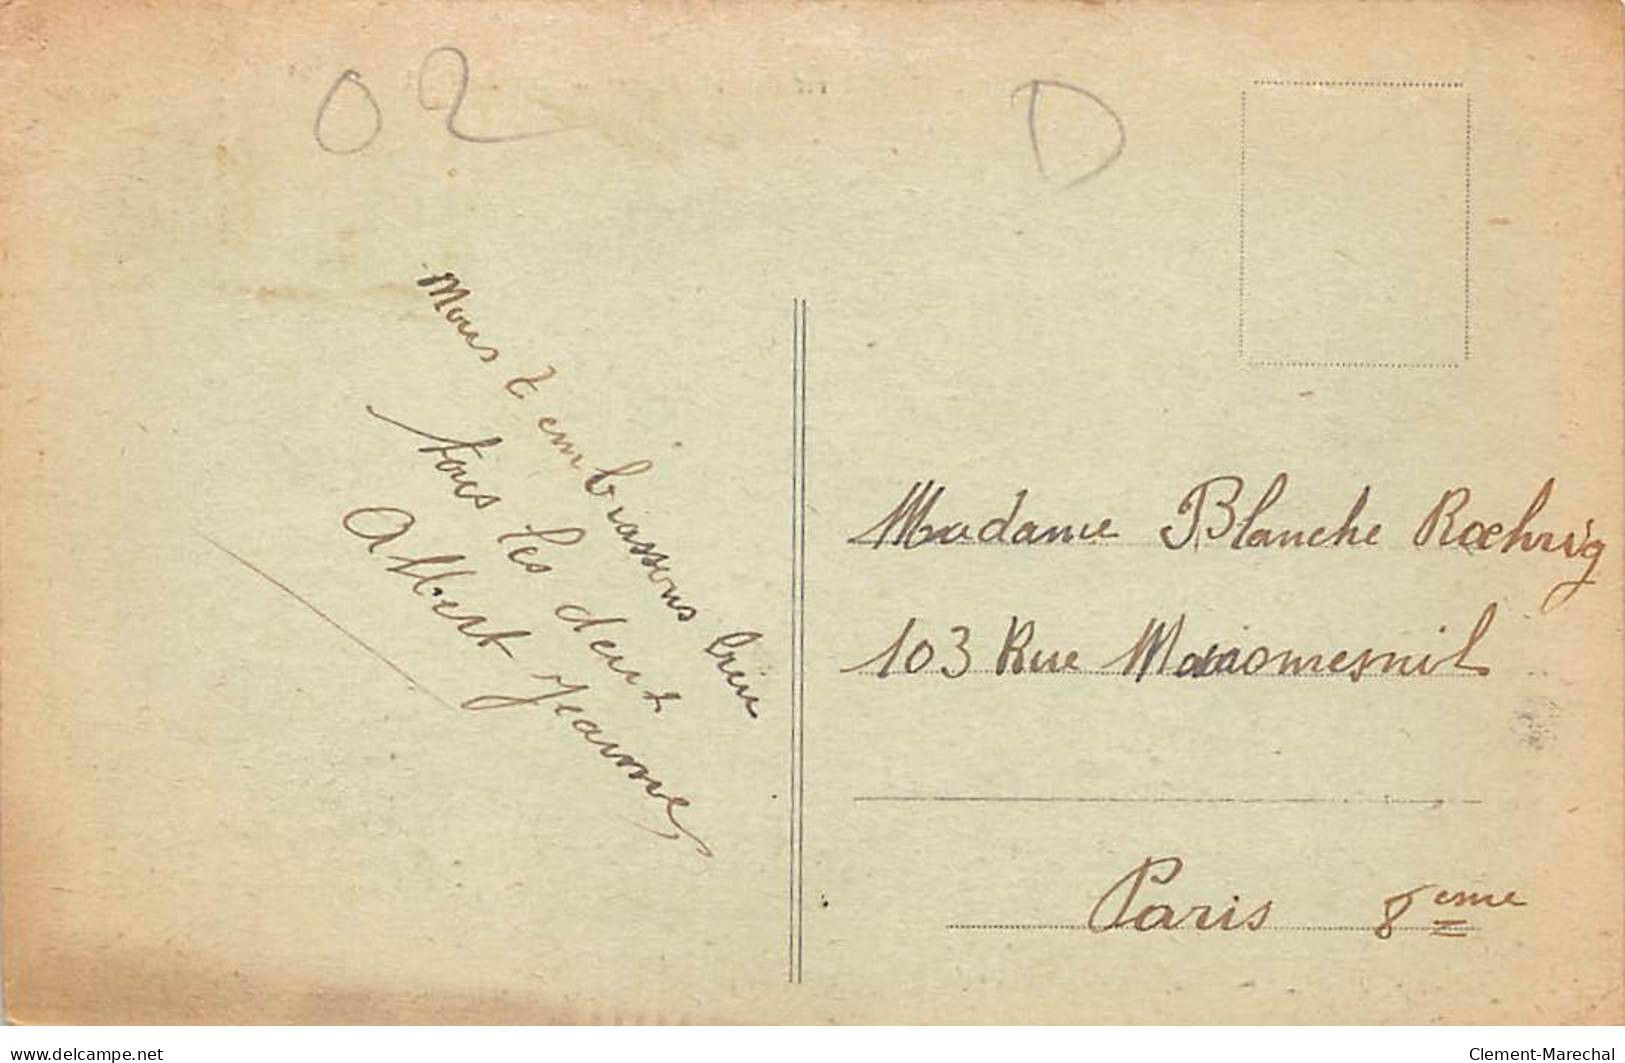 02
D
Nous t'embrassons bien
tous les deux
Albert Jeanne
Madame Blanche Roehrig
103 Rue Maiomesnil
Paris 8eme
www.delcampe.net
Clement-Marechal